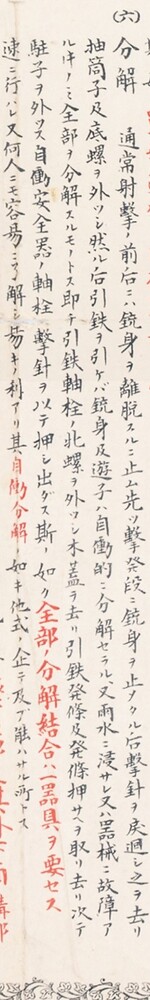 (六) 分解 通常射撃ノ前后ニハ銃身ヲ離脱スルニ止ム先ツ撃発段ニ銃身ヲ止メタル后撃針ヲ戻廻シ之ヲ去リ
抽筒子及底螺ヲ外ツシ然ル后引鉄ヲ引ケバ銃身及遊子ハ自働的ニ分解セラル又雨水ニ浸サレ又ハ器械ニ故障ア
ルトキノミ全部ヲ分解スルモノトス即チ引鉄軸栓ノ牝螺ヲ外ツシ木蓋ヲ去リ引鉄発條及発條押サヘヲ取リ去リ次テ
駐子ヲ外ツス自働安全器ノ軸栓ハ撃針ヲ以テ押シ出ダス斯ノ如ク全部ノ分解結合ハ一器具ヲ要セス
速ニ行ハレ又何人ニモ容易ニ了解シ易キノ利アリ其自働分解ノ如キ他式ノ企テ及ブ能ハサル所トス